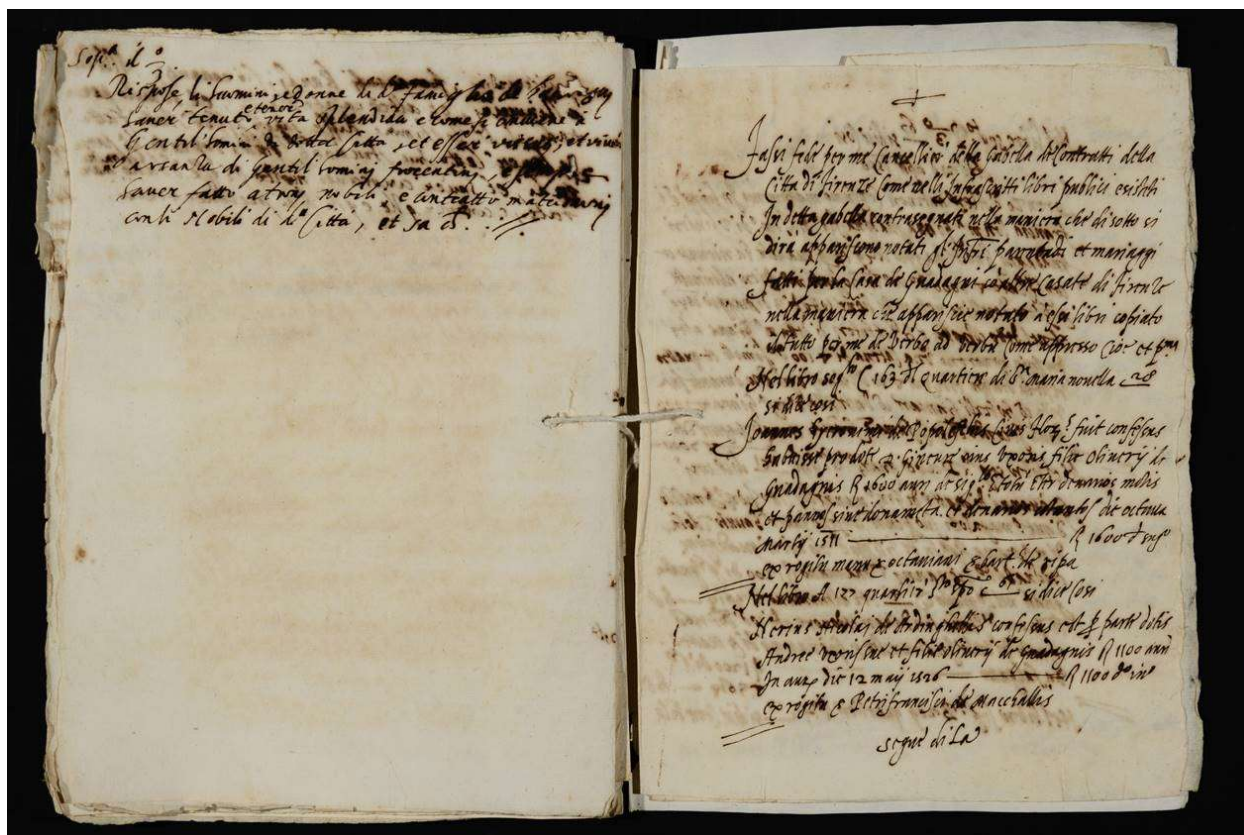 Sopª il
Rispose li huomini, e donne di dª famiglia de
haver tenuto, e tenere vita splendida e come si conviene a
Gentil'homini di dette Città, et esser vissuti, et
a usanza di Gentil'homini fiorentini, e
haver fatto a nobili, e contratto matrimonij
con li Nobili di dª Città, et sa etc.
Fassi fede per me Cancelliere della Gabella de Contratti della
Citta di firenze Come nelli Infrascritti libri publici esistenti
In detta gabella contrasegnati nella maniera che di sotto si
dirà appariscono notati gl'Infri parentadi et mariaggi
fatti per la Casa de Guadagni co altre Casate di firenze
nella maniera che apparisce notato a essi libri copiato
il tutto per me de Verbo ad verbu Come appresso Cioe et pma
Nel libro segto C 163 di quartiere di Sª maria novella 28
si dice cosi
Joannes Hyeronimi de Popoleschis Civis flor. fuit confessus
habuisse pro dote Ginevre eius Uxoris filie Olivierij de
Guadagnis 1600 auri de sig inter denarios
et pannos sive donameta et denarios die octava
Martij 1511 1600
ex rogitu manu octaviani bart. de ripa
Nel libro A 127 quartire Sto spo C 61 si dice Cosi
Nerius Nicolaj de Ardinghellis confessus est parte dotis
Andree uxoris sue et filie olivierij de Guadagnis 1100 auri
In auro die 12 maij 1526 1100
ex rogitu Petrifrancisci de Maccallis
segue di La